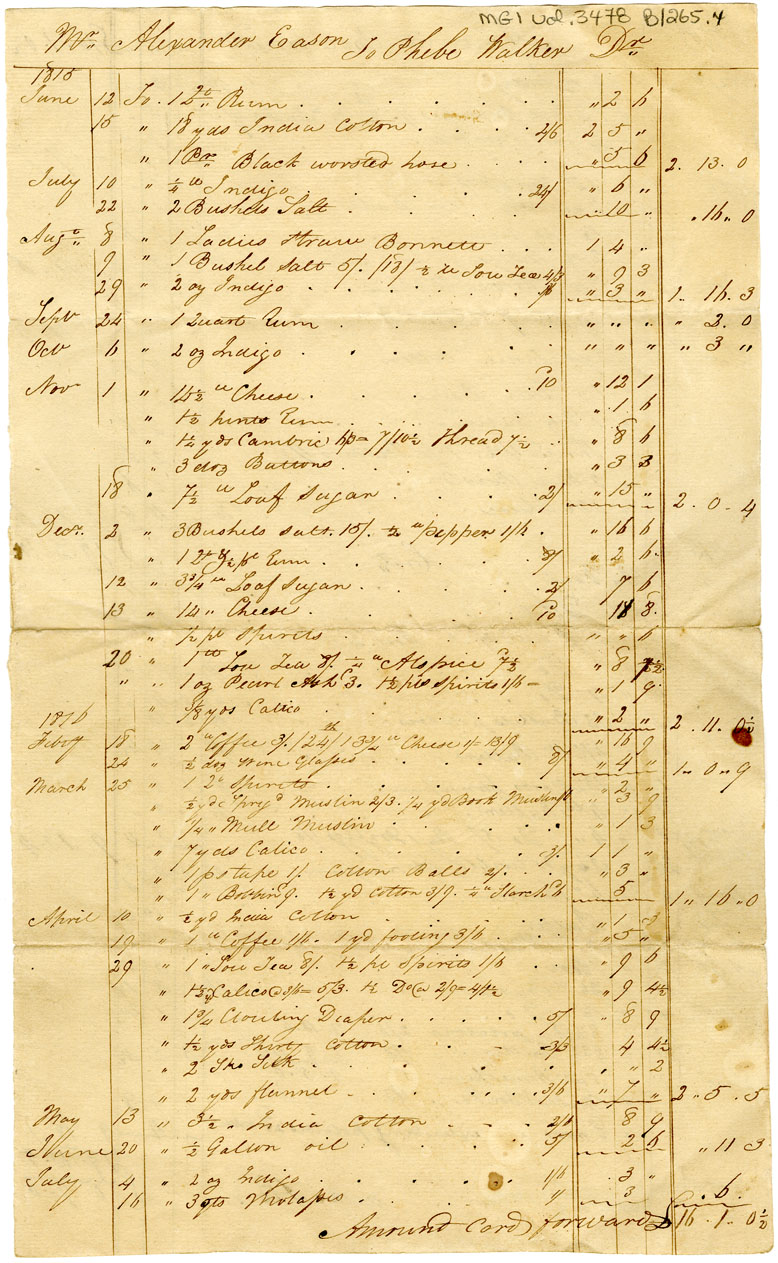 MG1 vol. 3478 B1265.4
Mr. Alexander Eason To Phebe Walker Dr.
1815
June 12 To 1 Qt Rum . . . . . " 2 6
15 " 18 yds India Cotton . . . . 2/6 2 5 "
" 1 Pr. Black worsted hose . . . " 5 6 2. 13. 0
July 10 " ¼ lb Indigo . . . 24/ " 6 "
22 " 2 Bushels Salt . . . " 10 " " 16 " 0
Augt 8 " 1 Ladies Straw Bonnett . . . 1 4 "
9 " 1 Bushel Salt 5/. /18/ ½ lb Sou Tea 4/3 " 9 3
29 " 2 oz Indigo . . . 1/6 " 3 " 1. 16. 3
Sept 24 " 1 Quart Rum . . . " " " " 2. 0
Oct 6 " 2 oz Indigo . . . . " " " " 3 "
Nov 1 " 14½ lb Cheese . . . 10 " 12 1
" 1½ pints Rum . . . " 1 6
" 1¼ yds Cambric 6/3= 7/10½ Thread 7½ . . " 8 6
" 3 doz Buttons . . . " 3 3
18 " 7½ lb Loaf Sugar . . . 2/ " 15 " 2. 0. 4
Decr. 2 " 3 Bushels Salt. 15/. ½ " pepper 1/6 . " 16 6
" 1 Qt ½ pt Rum . . . 8/ " 2 6
12 " 3¾ lb Loaf Sugar . . . 2/ 7 6
13 " 14 " Cheese . . . 10 " 11 8
" ½ pt Spirits . . . " " 6
20 " 1 lb Sou Tea 8/. ¼ " Alspice 7½ " 8 7½
" " . 1 oz Pearl Ash 3. 1½ pts Spirits 1/6 = " 1 9
" ⅝ yds Calico . . . " 2 " 2. 11. 0½
1816
Feby 18 " 2 " Coffee 3/. /24th/ 13¾ " Cheese 1/- 13/9 " 16 9
24 " ½ doz Wine Glasses . . 8/ " 4 " 1. 0 " 9
March 25 " 1 Qt Spirits . . . " 2 "
" ½ yd Sprigd Muslin 2/3. ¼ yd Book Muslin 1/6 " 3 9
" ¼ " Mull Muslin . . . " 1 3
" 7 yds Calico . . . 3/. 1 1 "
" 1 ps tape 1/. Cotton Balls 2/. . . " 3 "
" 1 " Bobbin 9. 1½ yd Cotton 3/9. ¼ " Starch 6 5 1 " 16 " 0
April 10 " ½ yd India Cotton . . . " 1 3
19 " 1 " Coffee 1/6. 1 yd footing 3/6 . . " 5 "
29 " 1 " Sou Tea 8/. 1½ pt Spirits 1/6 . . " 9 6
" 1½ yd Calico @ 3/6 = 5/3. 1½ Do @ 2/9 = 4/1½ " 9 4½
" 1¾ Clouting Diaper . . . 5/ " 8 9
" 1½ yds Shirtg Cotton . . - 3/3 4 4½
" 2 Sks Silk . . . " " 2
" 2 yds flannel . . . 3/6 " 7 " 2. 5. 5
May 13 " 3½ " India Cotton . . . 2/6 8 9
June 20 " ½ Gallon oil . . . 5/ 2 6 " 11 3
July 4 " 2 oz Indigo . . . 1/6 . 3 "
16 " 3 qts Molasses . . . 1/ 3 . 6.
Amount Card forward £ 16. 1. 0½